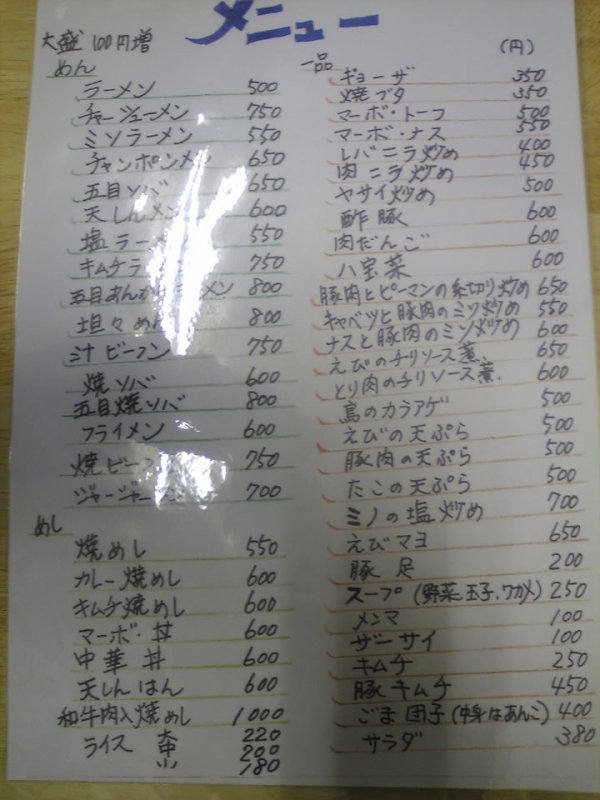 メニュー
大盛 100円増
めん
ラーメン 500
チャーシューメン 750
ミソラーメン 550
チャンポンメン 650
五目ソバ 650
天しんメン 600
塩ラーメン 550
キムチラ 750
五目あんかけラーメン 800
坦々めん 800
汁ビーフン 750
焼ソバ 600
五目焼ソバ 800
フライメン 600
焼ビーフン 750
ジャージャーメン 700
めし
焼めし 550
カレー焼めし 600
キムチ焼めし 600
マーボ・丼 600
中華丼 600
天しんはん 600
和牛肉入焼めし 1000
ライス 大 220
中 200
小 180
一品 (円)
ギョーザ 350
焼ブタ 350
マーボ・トーフ 500
マーボ・ナス 550
レバニラ炒め 400
肉ニラ炒め 450
ヤサイ炒め 500
酢豚 600
肉だんご 600
八宝菜 600
豚肉とピーマンの糸切り炒め 650
キャベツと豚肉のミソ炒め 550
ナスと豚肉のミソ炒め 600
えびのチリソース煮 650
とり肉のチリソース煮 600
鳥のカラアゲ 500
えびの天ぷら 500
豚肉の天ぷら 500
たこの天ぷら 500
ミノの塩炒め 700
えびマヨ 650
豚足 200
スープ(野菜.玉子.ワカメ) 250
メンマ 100
ザーサイ 100
キムチ 250
豚キムチ 450
ごま団子(中身はあんこ) 400
サラダ 380